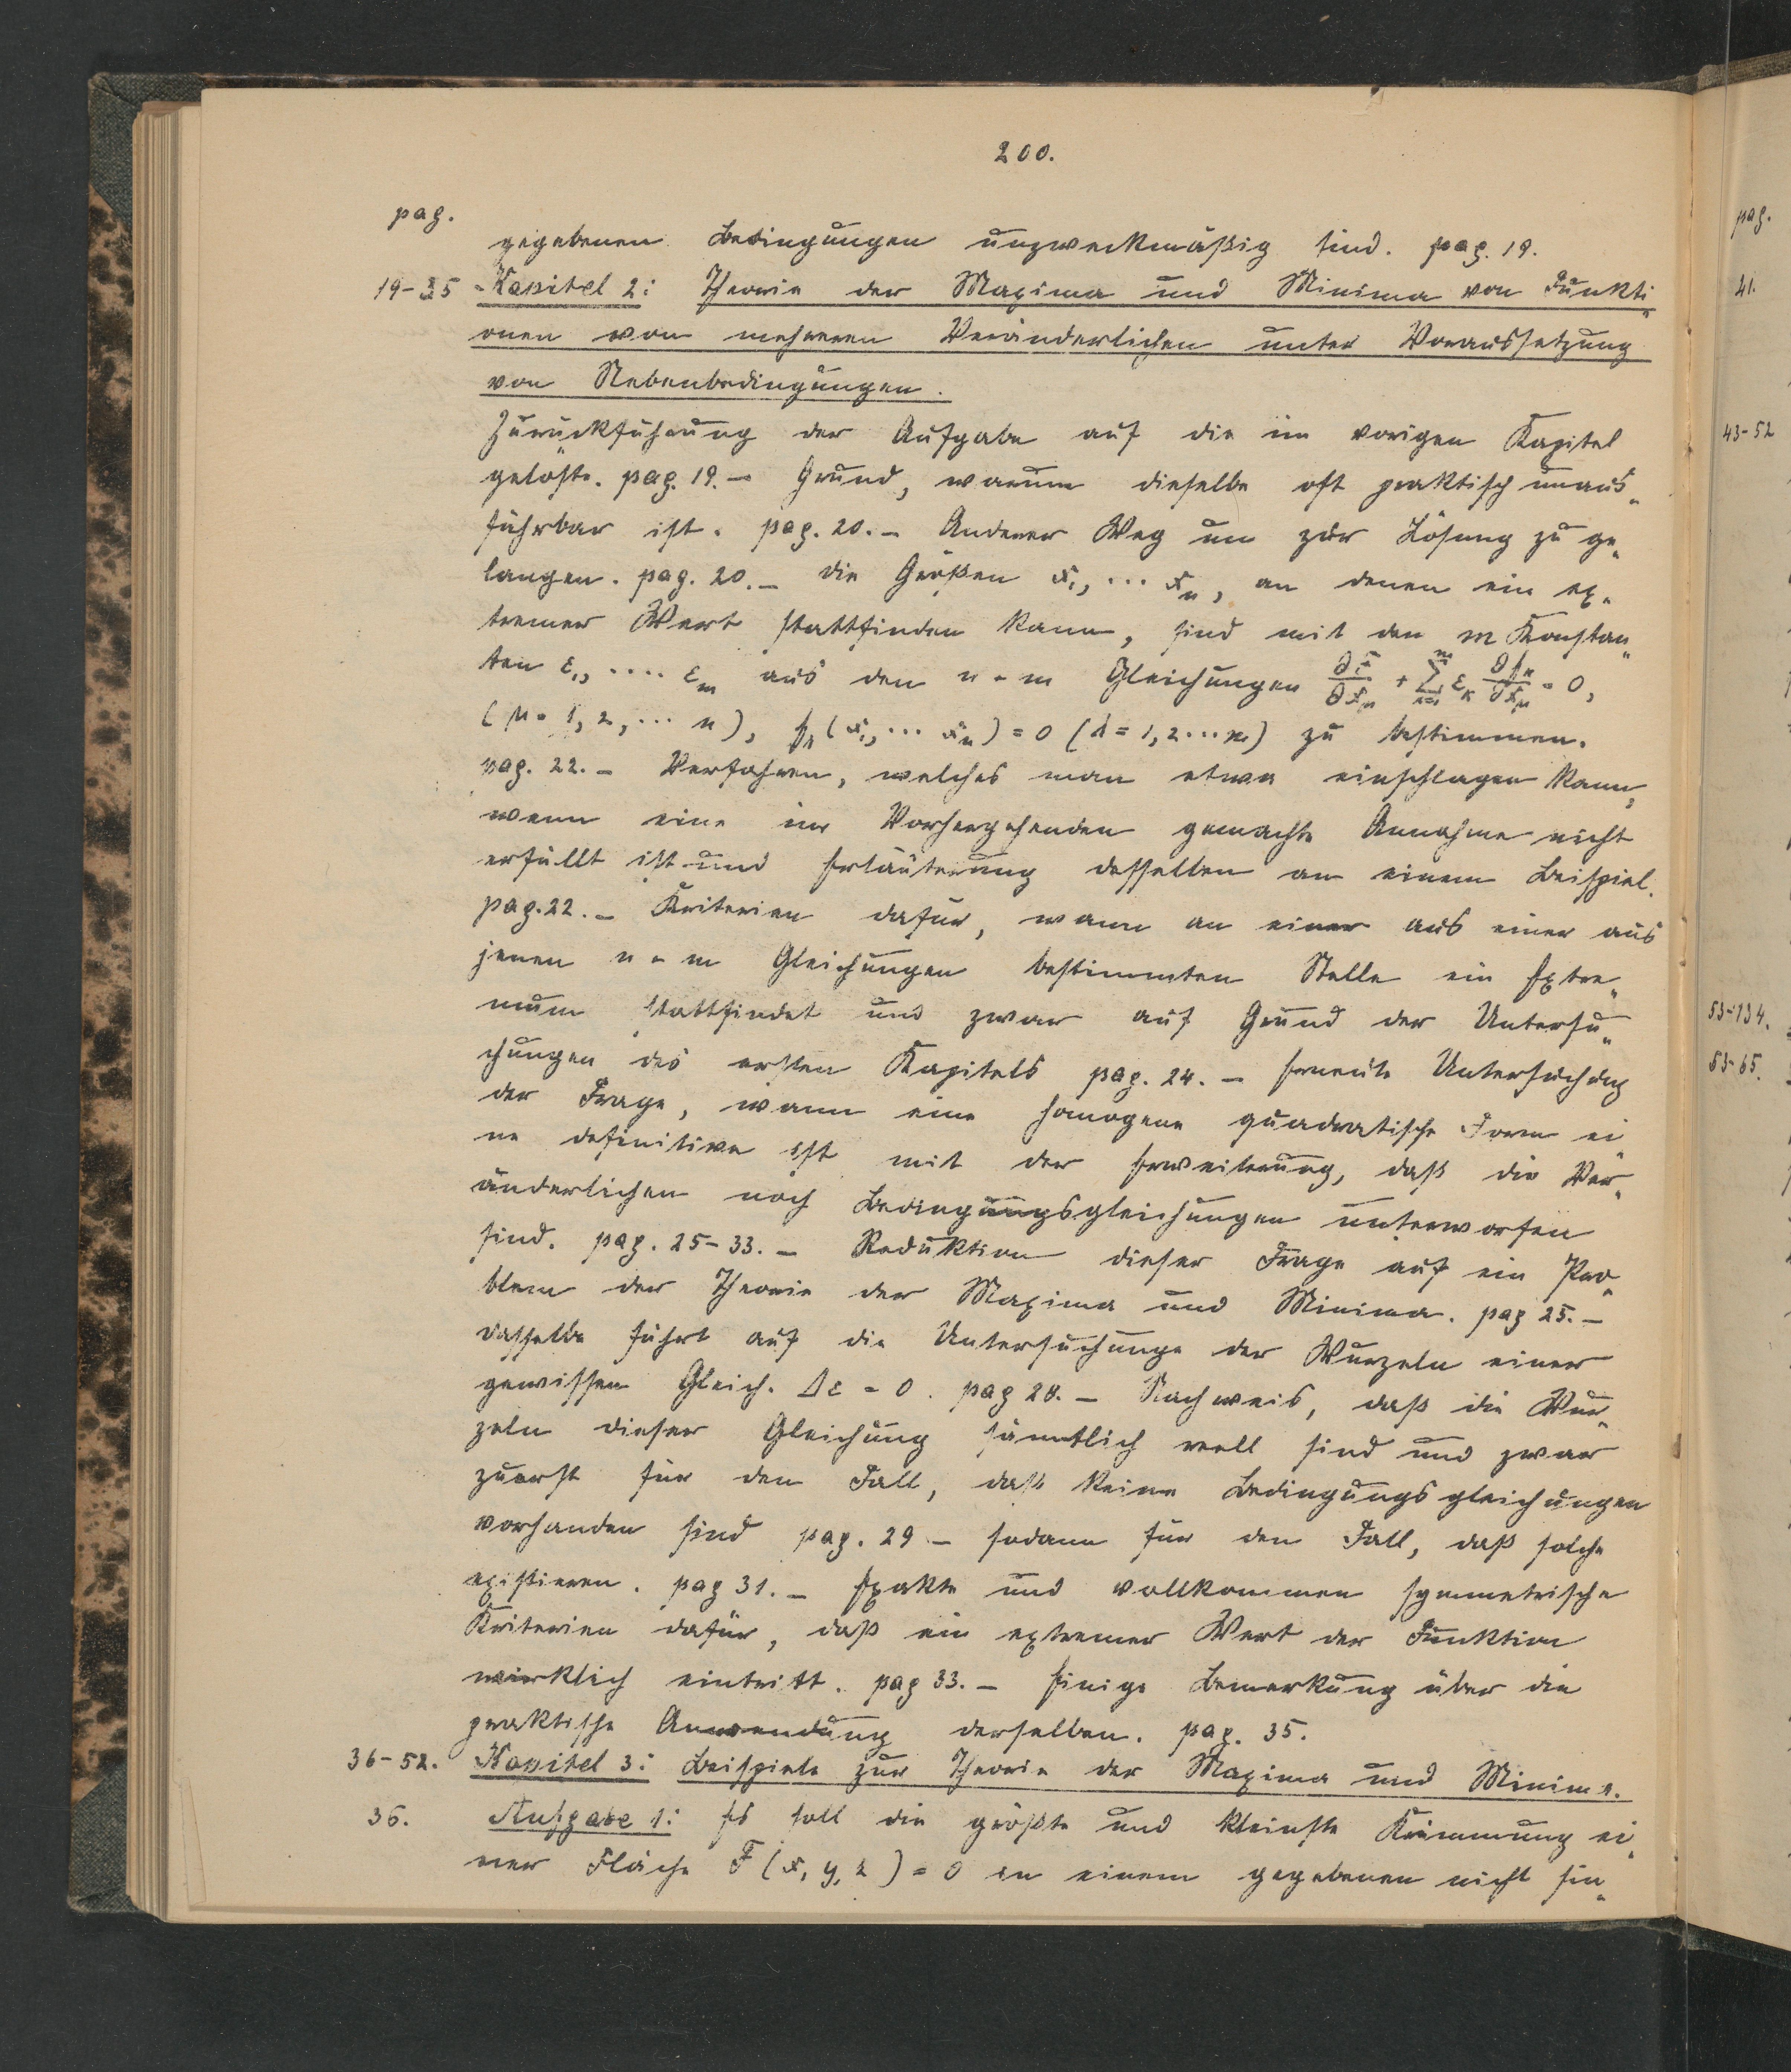 200.
pag.
gegebenen Bedingungen unzweckmäßig sind. pag. 19.
19-35 Kapitel 2: Theorie der Maxima und Minima von Funkti„
onen von mehreren Veränderlichen unter Voraussetzung
von Nebenbedingungen.
Zurückführung der Aufgabe auf die im vorigen Kapitel
gelöste. pag. 19. – Grund, warum dieselbe oft praktisch unaus„
führbar ist. pag. 20. – Anderer Weg um zur Lösung zu ge„
langen. pag. 20. – die Größen x₁, ... xₙ, an denen ein ex„
tremer Wert stattfinden kann, sind mit den m Konstan„
ten ε₁, .... εₘ aus den n+m Gleichungen ∂F/∂x_μ + Σ_{κ=1}^{m} ε_κ ∂f_κ/∂x_μ = 0,
(μ = 1, 2, ... n), f_λ(x₁, ... xₙ) = 0 (λ = 1, 2 ... m) zu bestimmen.
pag. 22. – Verfahren, welches man etwa einschlagen kann,
wenn eine im Vorhergehenden gemachte Annahme nicht
erfüllt ist und Erläuterung desselben an einem Beispiel.
pag. 22. – Kriterien dafür, wann an einer aus einer aus
jenen n+m Gleichungen bestimmten Stelle ein Extre„
mum stattfindet und zwar auf Grund der Untersu„
chungen des ersten Kapitels pag. 24. – Erneute Untersuchung
der Frage, wann eine homogene quadratische Form ei„
ne definitive ist mit der Erweiterung, daß die Ver„
änderlichen noch Bedingungsgleichungen unterworfen
sind. pag. 25-33. – Reduktion dieser Frage auf ein Pro„
blem der Theorie der Maxima und Minima. pag 25. –
dasselbe führt auf die Untersuchunge der Wurzeln einer
gewissen Gleich. Δε = 0. pag 28. – Nachweis, daß die Wur„
zeln dieser Gleichung sämtlich reell sind und zwar
zuerst für den Fall, daß keine Bedingungsgleichungen
vorhanden sind pag. 29 – sodann für den Fall, daß solche
existieren. pag 31. – Exakte und vollkommen symmetrische
Kriterien dafür, daß ein extremer Wert der Funktion
wirklich eintritt. pag 33. – Einige Bemerkung über die
praktische Anwendung derselben. pag. 35.
36-52. Kapitel 3: Beispiele zur Theorie der Maxima und Minima.
36. Aufgabe 1: Es soll die größte und kleinste Krümmung ei„
ner Fläche F(x, y, z) = 0 in einem gegebenen nicht sin„
pag.
41.
43-52
53-134.
53-65.